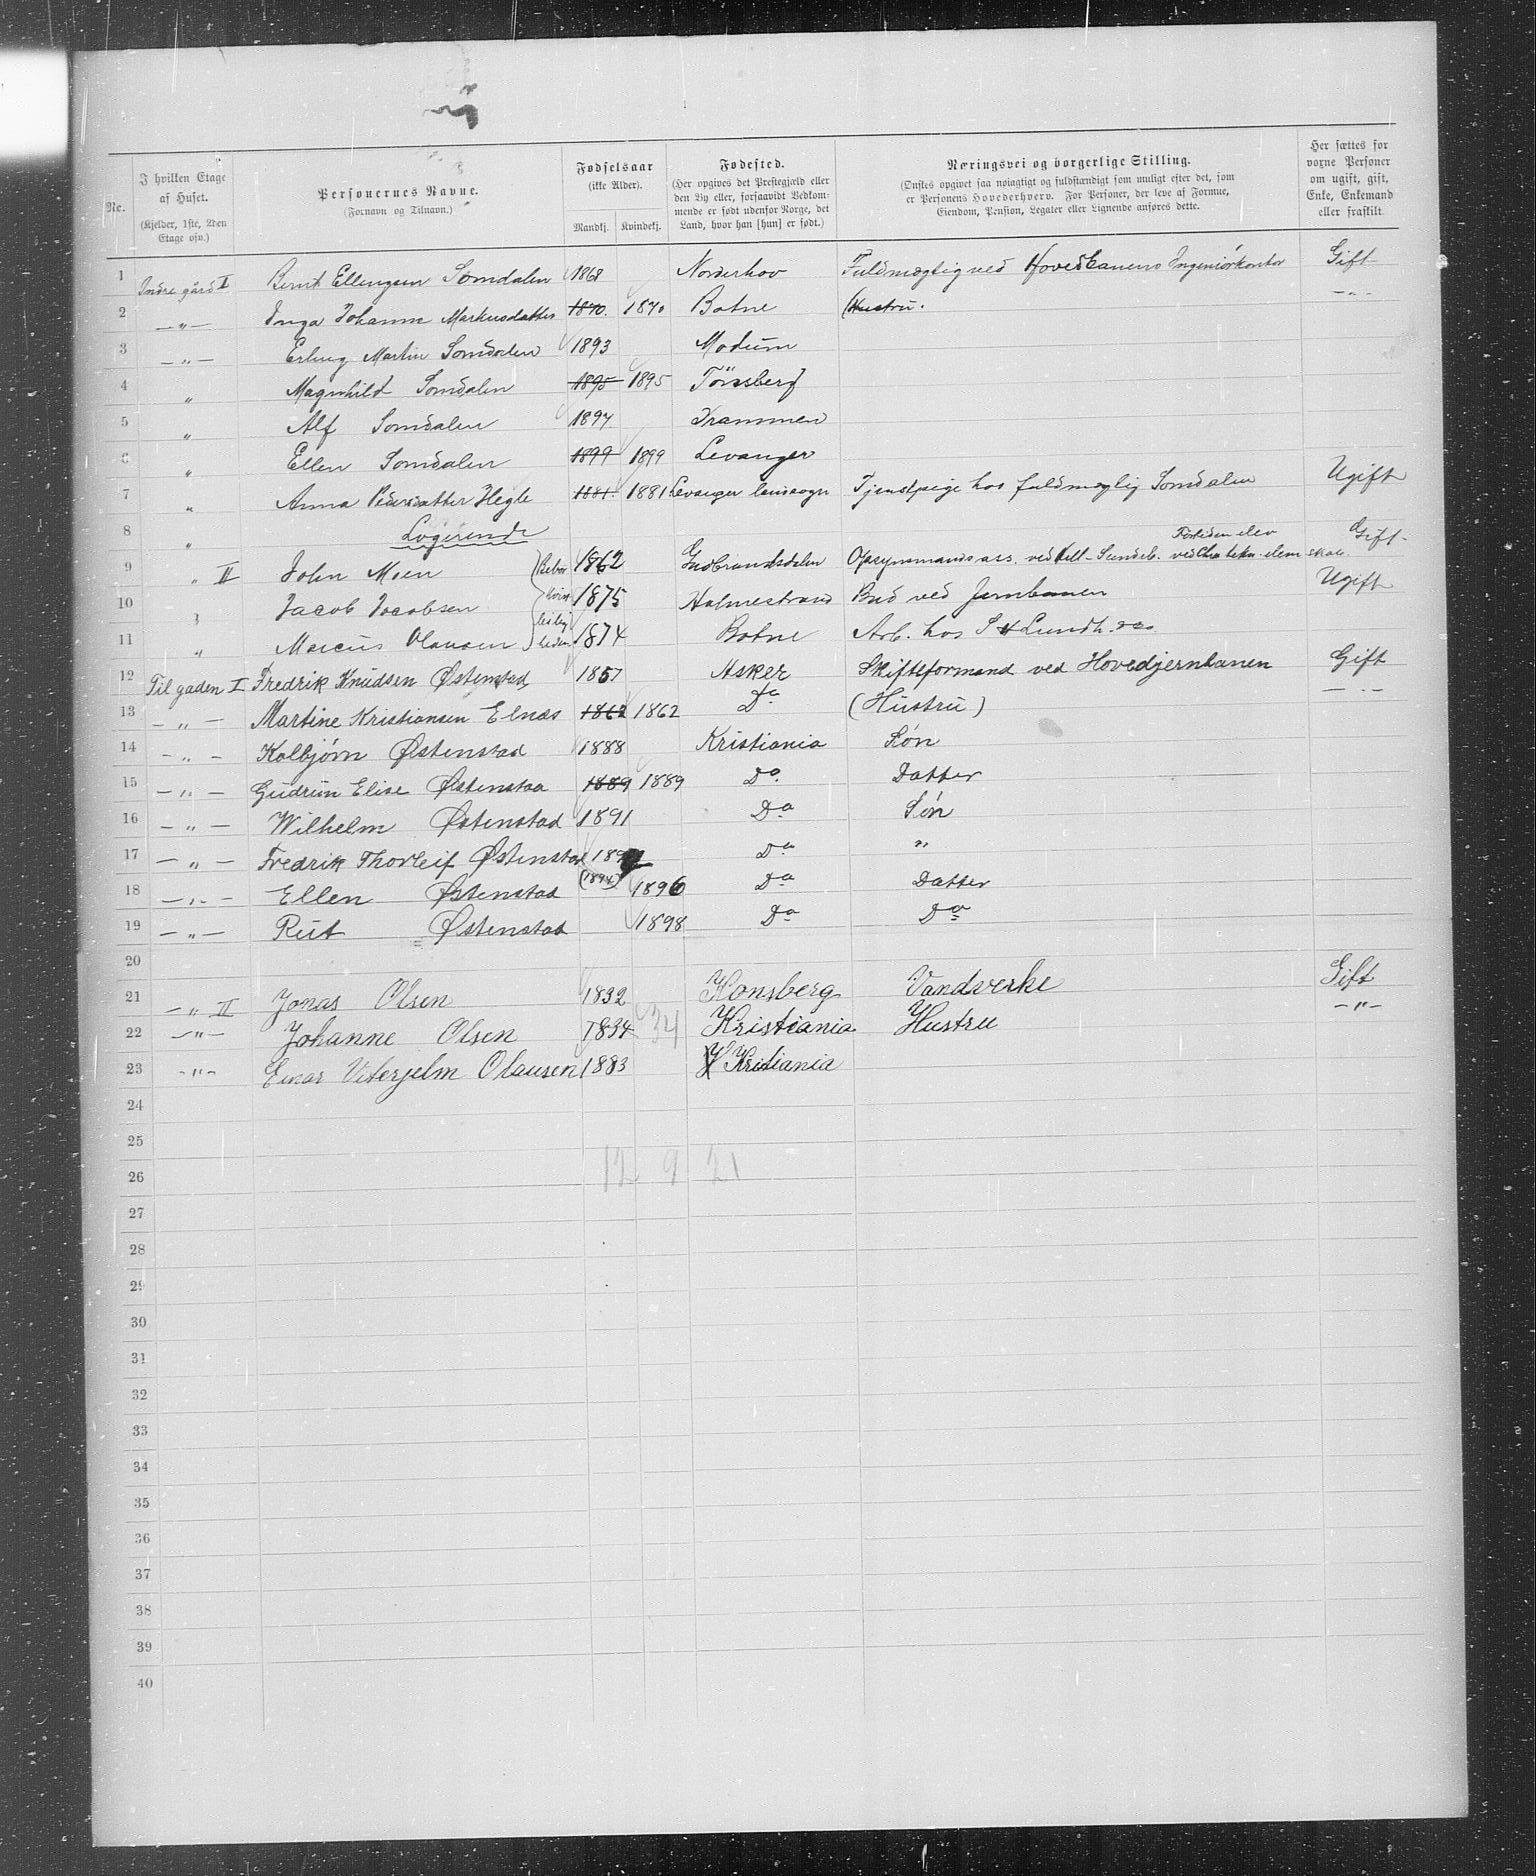 No.
I hvilken Etage af Huset. (Kjelder, 1ste, 2den Etage osv.)
Personernes Navne. (Fornavn og Tilnavn.)
Fødselsaar (ikke Alder). Mandkj. Kvindekj.
Fødested. (Her opgives det Prestegjæld eller den By eller, forsaavidt Vedkommende er født udenfor Norge, det Land, hvor han [hun] er født.)
Næringsvei og borgerlige Stilling. (Ønskes opgivet saa nøiagtigt og fuldstændigt som muligt efter det, som er Personens Hovederhverv. For Personer, der leve af Formue, Eiendom, Pension, Legater eller Lignende anføres dette.
Her sættes for voxne Personer om ugift, gift, Enke, Enkemand eller fraskilt.
1 Indre gård II Bernt Ellengsen Somdalen 1868 Norderhov Fuldmægtig ved Hovedbanens Ingeniørkontor Gift
2 — „ — Inga Johanne Markusdatter 1870. 1870 Botne (Hustru. — „ —
3 — „ — Erling Martin Somdalen 1893 Modum
4 „ Magnhild Somdalen 1895 1895 Tönsberg
5 „ Alf Somdalen 1897 Drammen
6 „ Ellen Somdalen 1899 1899 Levanger
7 „ Anna Pedersdatter Hegle 1881 1881 Levanger landsogn Tjenstpige hos fuldmægtig Somdalen Ugift
8 „ Logerende
Fortiden elev
9 „ II John Moen 1862 Gudbrandsdalen Opsynsmandsass. ved ved Chra tekn. elem skole Gift
10 „ Jacob Jacobsen 1875 Holmestrand Bud ved Jernbanen Ugift
11 „ Marcus Olausen 1874 Botne Arb. hos Lundh
12 Til gaden I Fredrik Knudsen Østenstad 1857 Asker Skifteformand ved Hovedjernbanen Gift
13 — „ — Martine Kristiansen Elnæs 1862 1862 Do (Hustru) — „ —
14 — „ — Kolbjørn Østenstad 1888 Kristiania Søn
15 — „ — Gudrun Elise Østenstad 1889 1889 Do Datter
16 — „ — Wilhelm Østenstad 1891 Do Søn
17 — „ — Fredrik Thorleif Østenstad 189 Do „
(1894)
18 — „ — Ellen Østenstad 1896 Do Datter
19 — „ — Rut Østenstad 1898 Do Do
20
21 — „ II Jonas Olsen 1832 Konsberg Vandverke Gift
22 — „ — Johanne Olsen 1834 34 Kristiania Hustru — „ —
23 — „ — Einar Viterjelm Olausen 1883 Kristiania
24
25
26 12 9 21
27
28
29
30
31
32
33
34
35
36
37
38
39
40